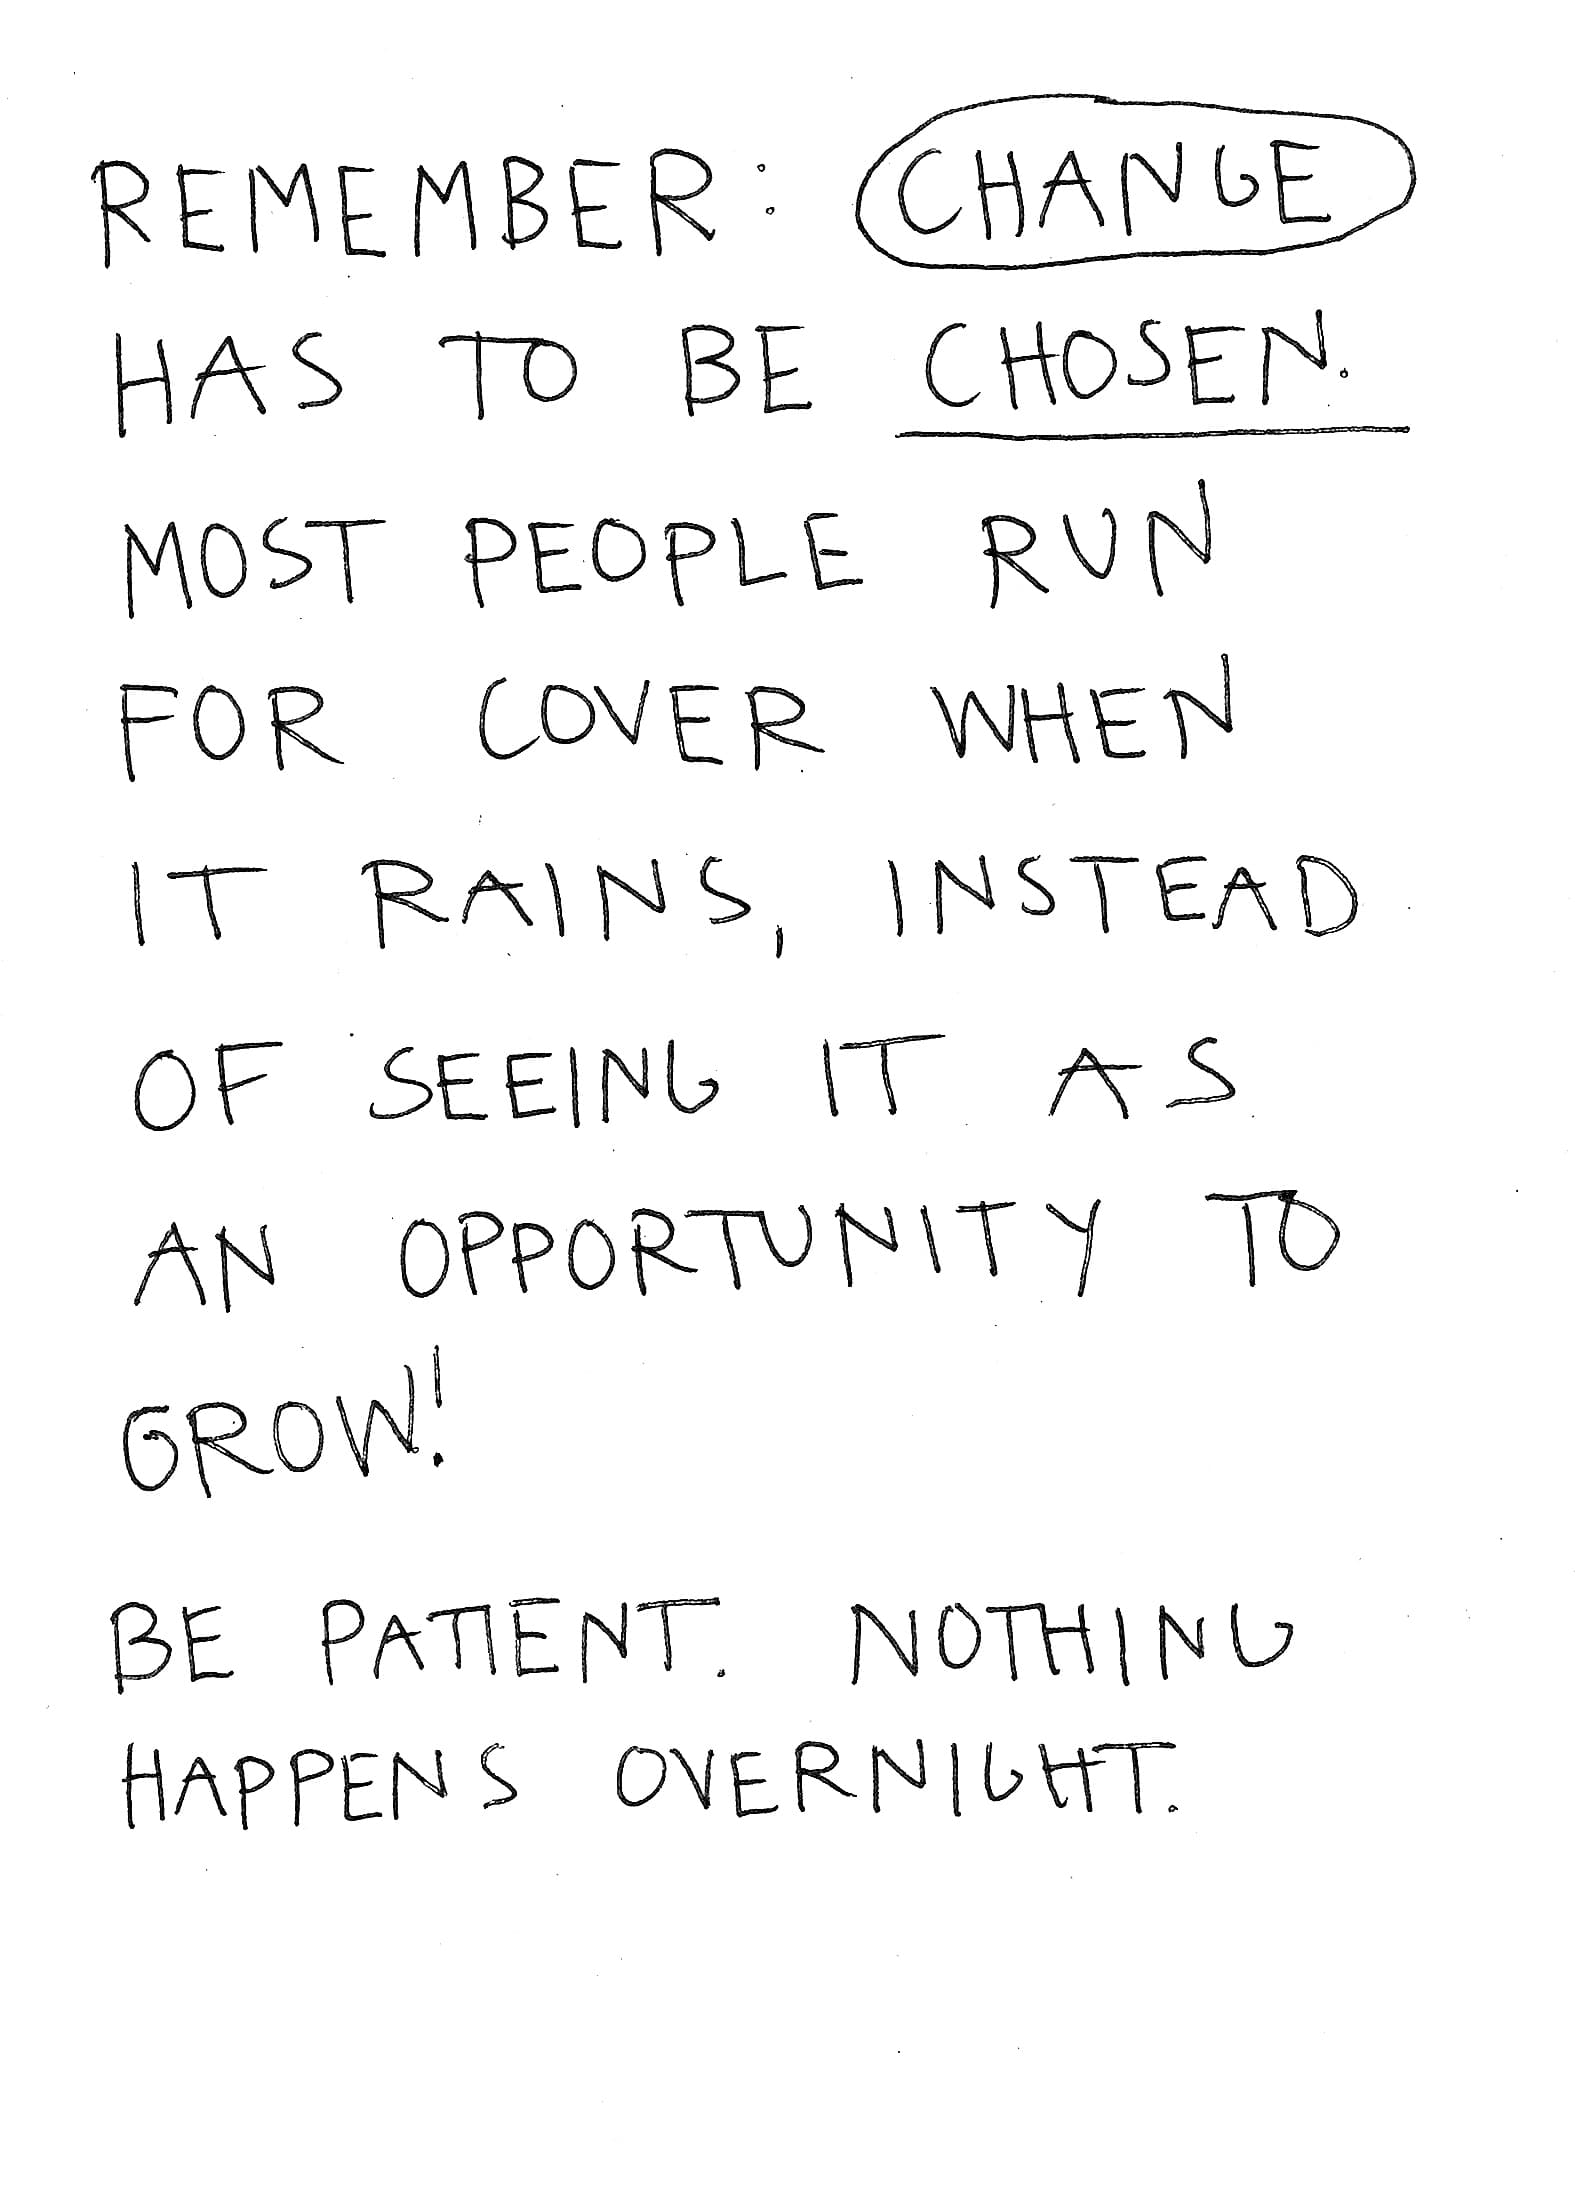 REMEMBER: CHANGE
HAS TO BE CHOSEN.
MOST PEOPLE RUN
FOR COVER WHEN
IT RAINS, INSTEAD
OF SEEING IT AS
AN OPPORTUNITY TO
GROW!
BE PATIENT. NOTHING
HAPPENS OVERNIGHT.